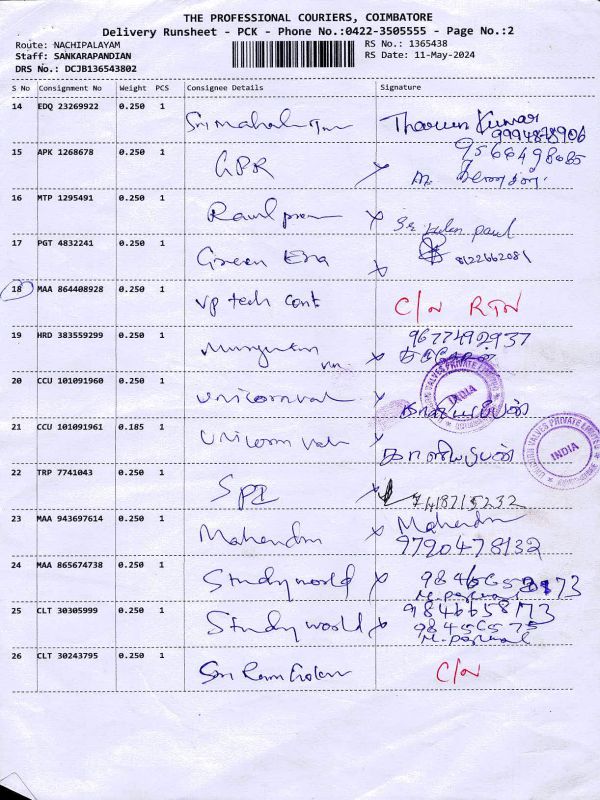 THE PROFESSIONAL COURIERS, COIMBATORE
Delivery Runsheet - PCK - Phone No.:0422-3505555 - Page No.:2
Route: NACHIPALAYAM
RS No.: 1365438
Staff: SANKARAPANDIAN
RS Date: 11-May-2024
DRS No.: DCJB136543802
S No Consignment No Weight PCS Consignee Details Signature
14 EDQ 23269922 0.250 1 Tharun Kumar
9994878906
15 APK 1268678 0.250 1 GPR
16 MTP 1295491 0.250 1 paul
17 PGT 4832241 0.250 1 Green Era 8122662081
18 MAA 864408928 0.250 1 VP tech Cont C/N RTN
19 HRD 383559299 0.250 1 9677492937
20 CCU 101091960 0.250 1 Unicornval
21 CCU 101091961 0.185 1 Unicorn Valv
INDIA
INDIA
22 TRP 7741043 0.250 1 SPI 7418715232
23 MAA 943697614 0.250 1 Mahendra Mahendra
9790478132
24 MAA 865674738 0.250 1 Study world
25 CLT 30305999 0.250 1 Study world 9846658173
26 CLT 30243795 0.250 1 C/N